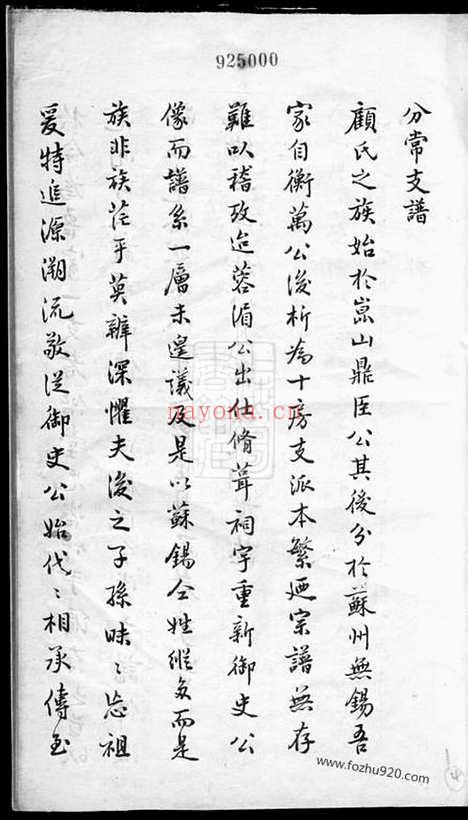 925000
分常支譜
顧氏之族始於崑山鼎臣公其後分於蘇州無錫吾
家自衡萬公後析為十房支派本繁廼宗譜無存
難以稽攷迨蓉湄公出仕脩葺祠宇重新御史公
像而譜系一層未遑議及是以蘇錫仝姓繁多而是
族非族茫乎莫辨深懼夫後之子孫昧〻忘祖
爰特追源溯流敬從御史公始代〻相承傳至
nayona.cn
www.fozhu920.com